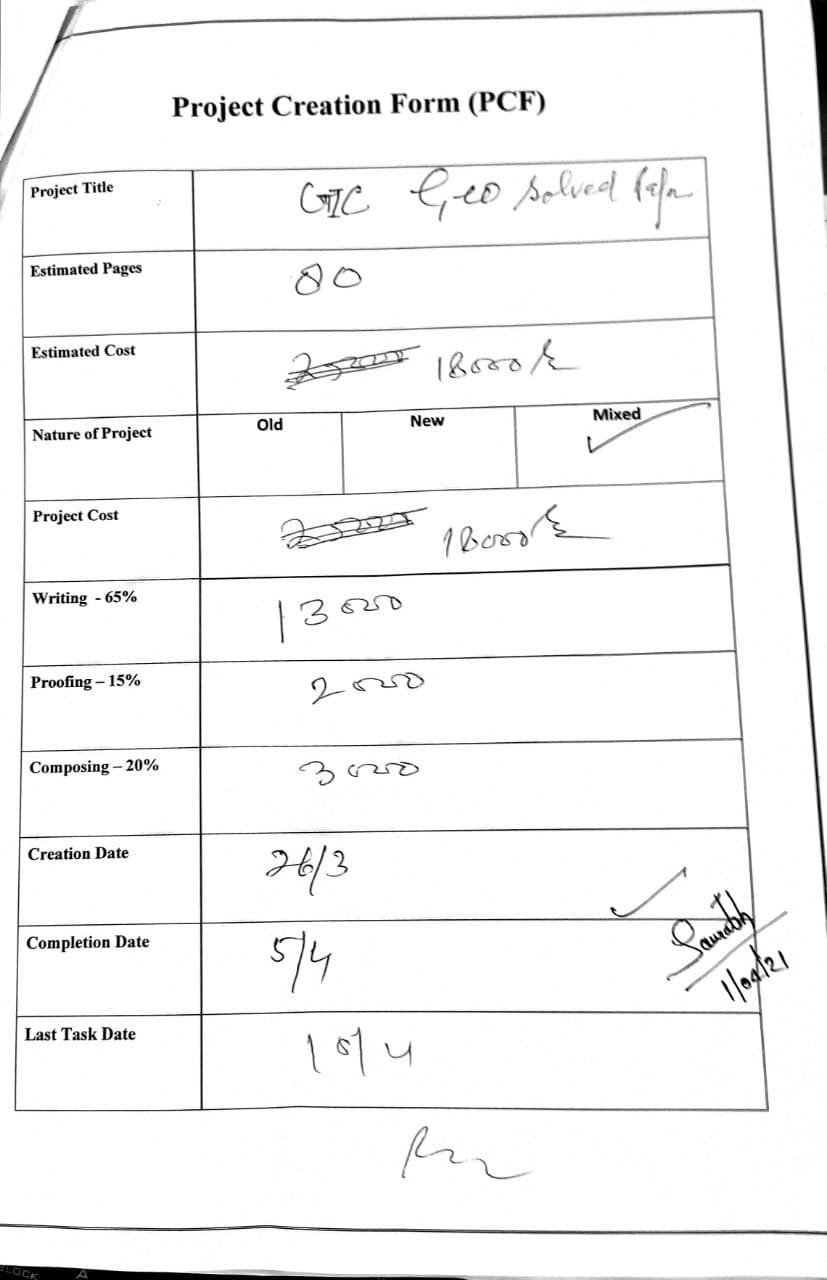 Project Creation Form (PCF)
Project Title GIC Geo Solved
Estimated Pages 80
Estimated Cost 18000/-
Nature of Project Old New Mixed ✓
Project Cost 18000/-
Writing - 65% 13000
Proofing – 15% 2000
Composing – 20% 3000
Creation Date 26/3
Completion Date 5/4
Saurabh
1/04/21
Last Task Date 10/4